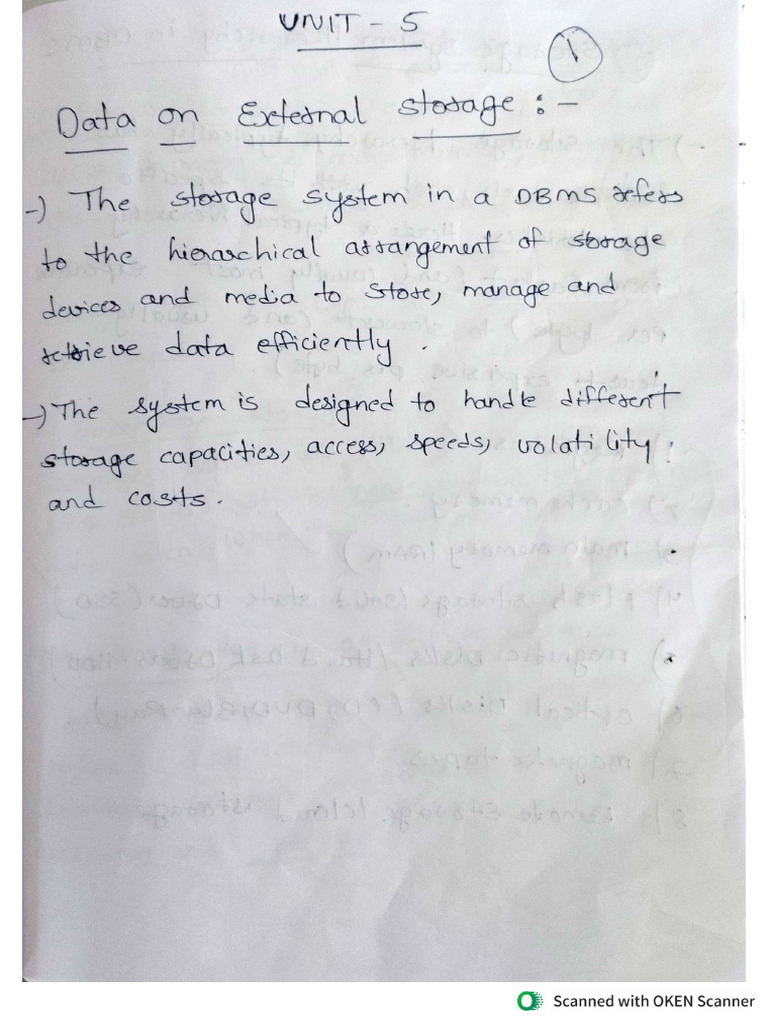 UNIT - 5
1
Data on External storage : -
-) The storage system in a DBMS refers
to the hierarchical arrangement of storage
devices and media to store, manage and
retrieve data efficiently .
-) The system is designed to handle different
storage capacities, access, speeds, volatility
and costs .
Scanned with OKEN Scanner